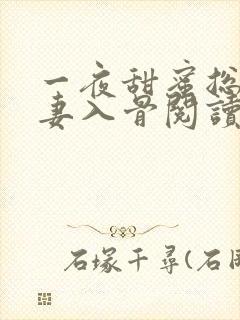 一夜甜蜜总
妻入骨閱讀
石塚千尋(石